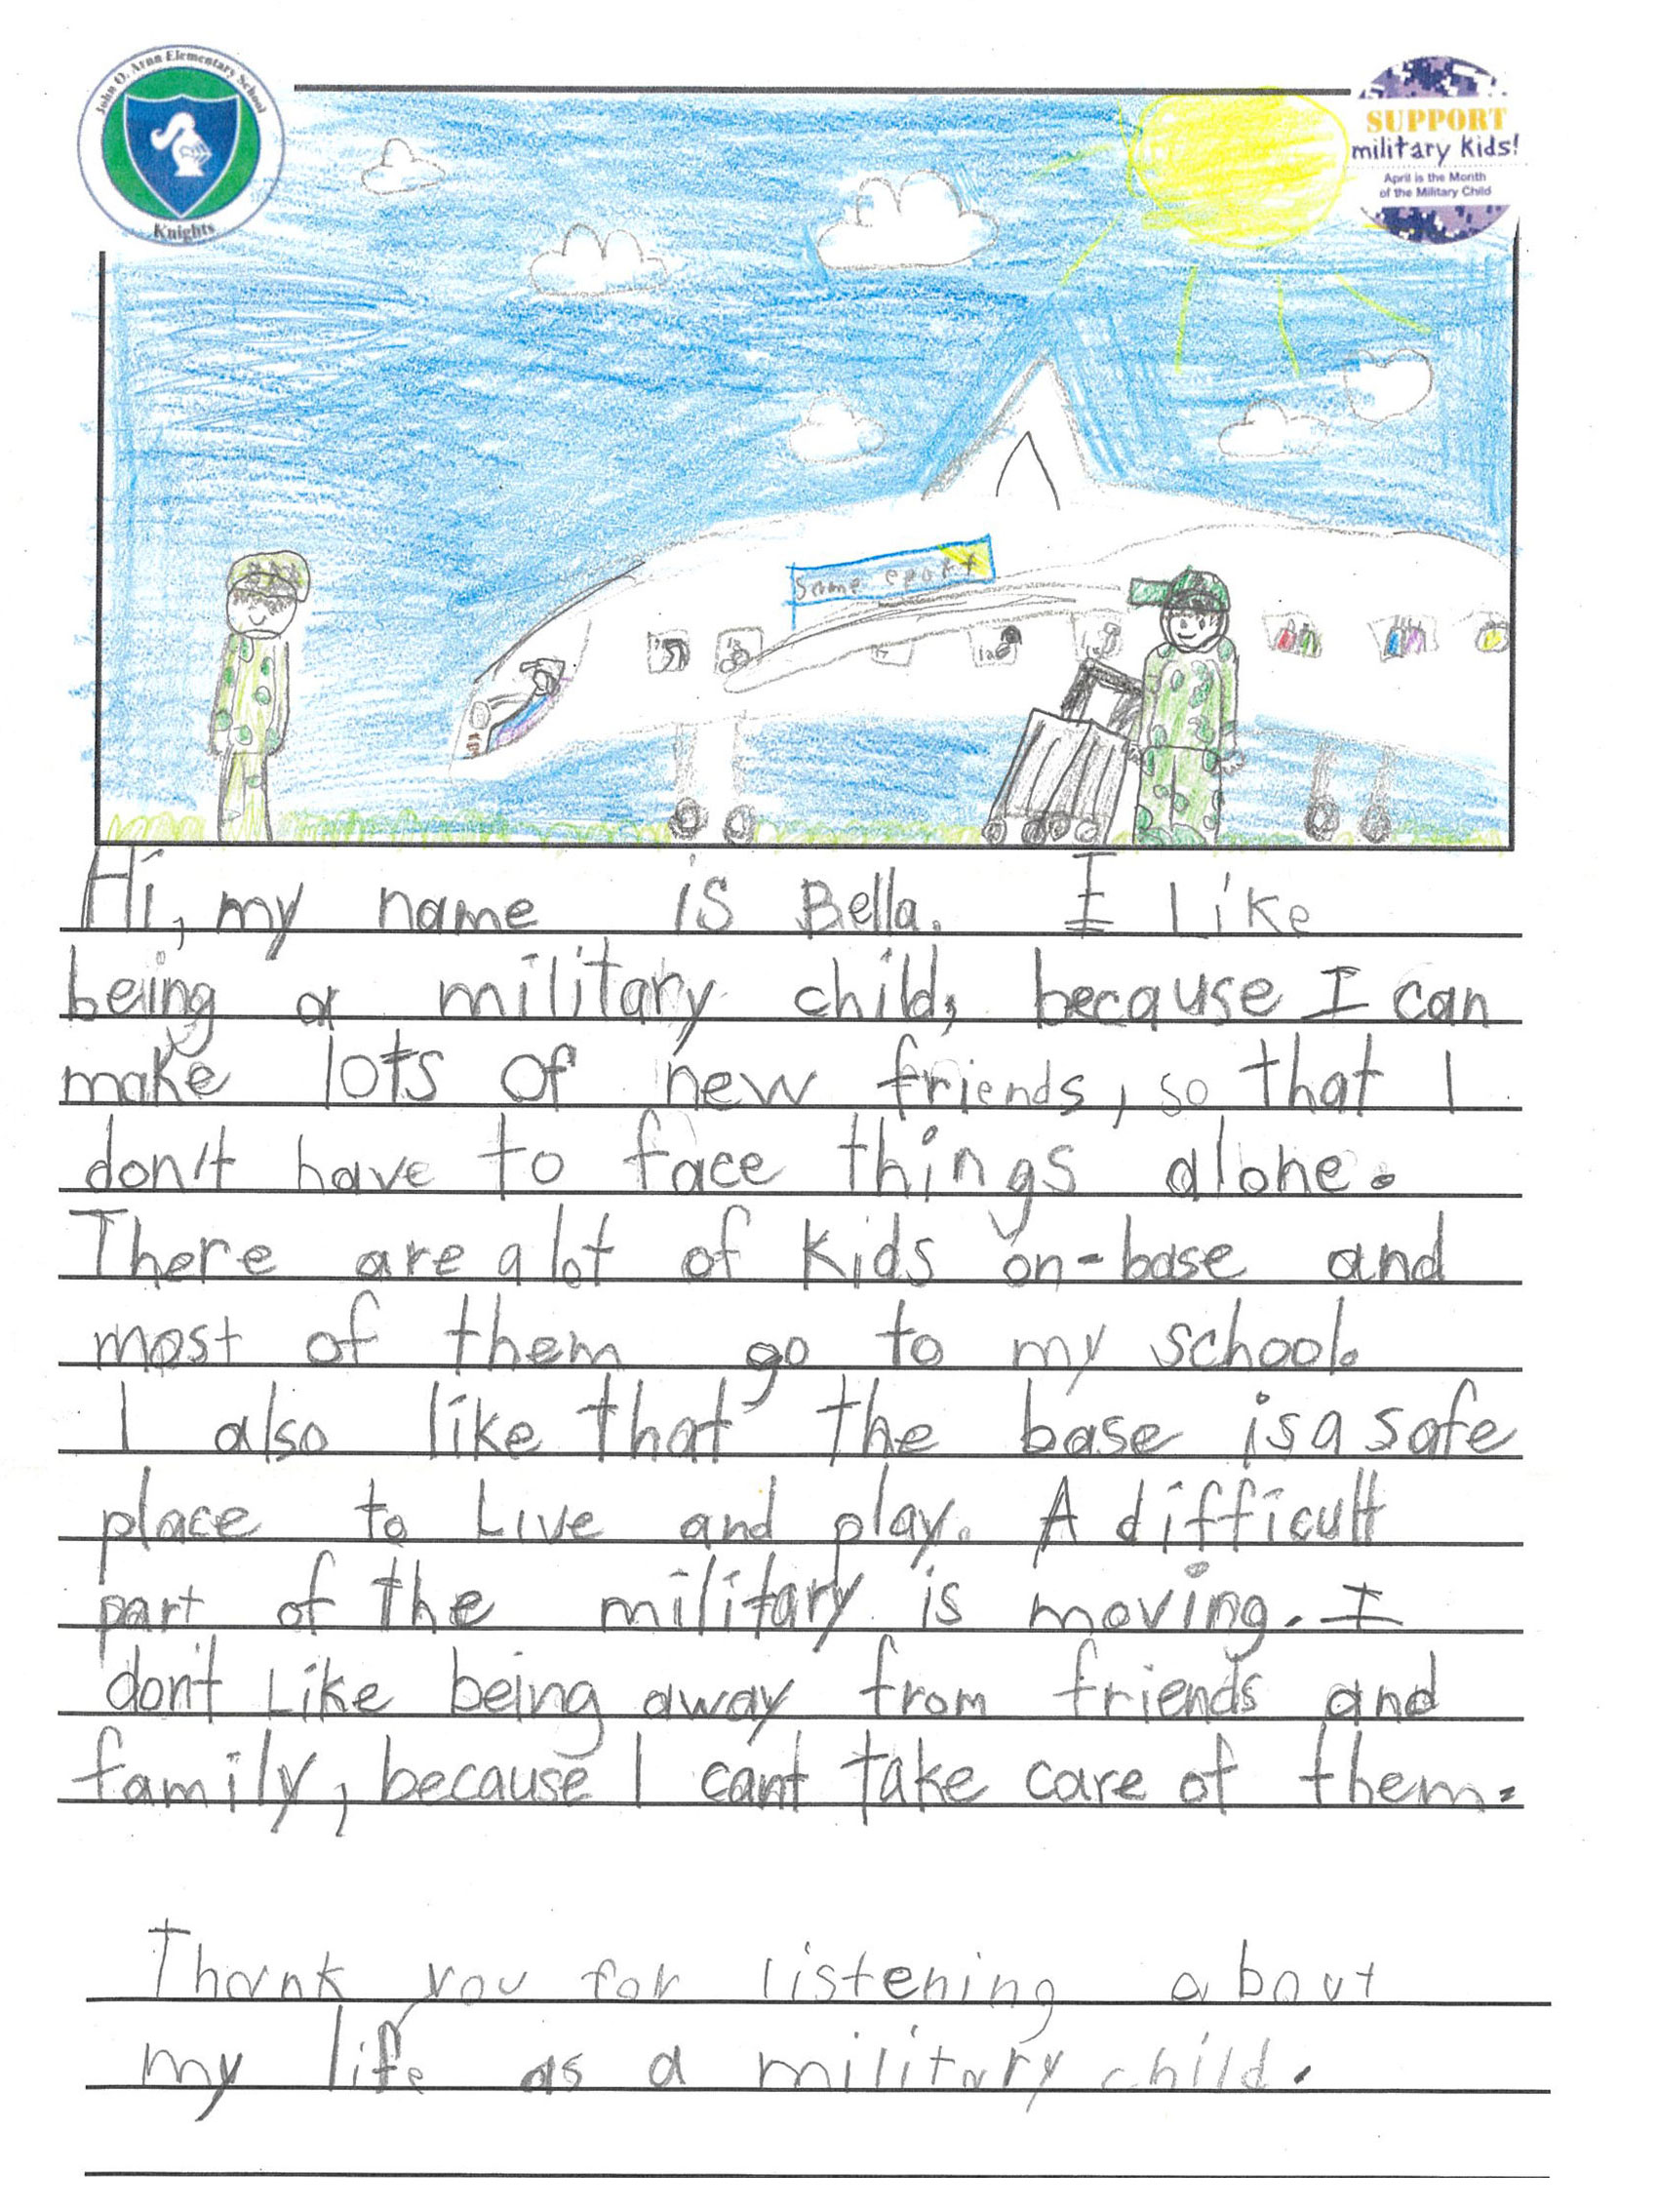 John O. Arnn Elementary School
Knights
SUPPORT
military kids!
April is the Month
of the Military Child
Some
Hi, my name is Bella. I Like
being a military child, because I can
make lots of new friends, so that I
don't have to face things alone.
There are a lot of kids on-base and
most of them go to my school.
I also like that the base is a safe
place to Live and play. A difficult
part of the military is moving. I
don't Like being away from friends and
family, because I can't take care of them.
Thank you for listening about
my life as a military child.